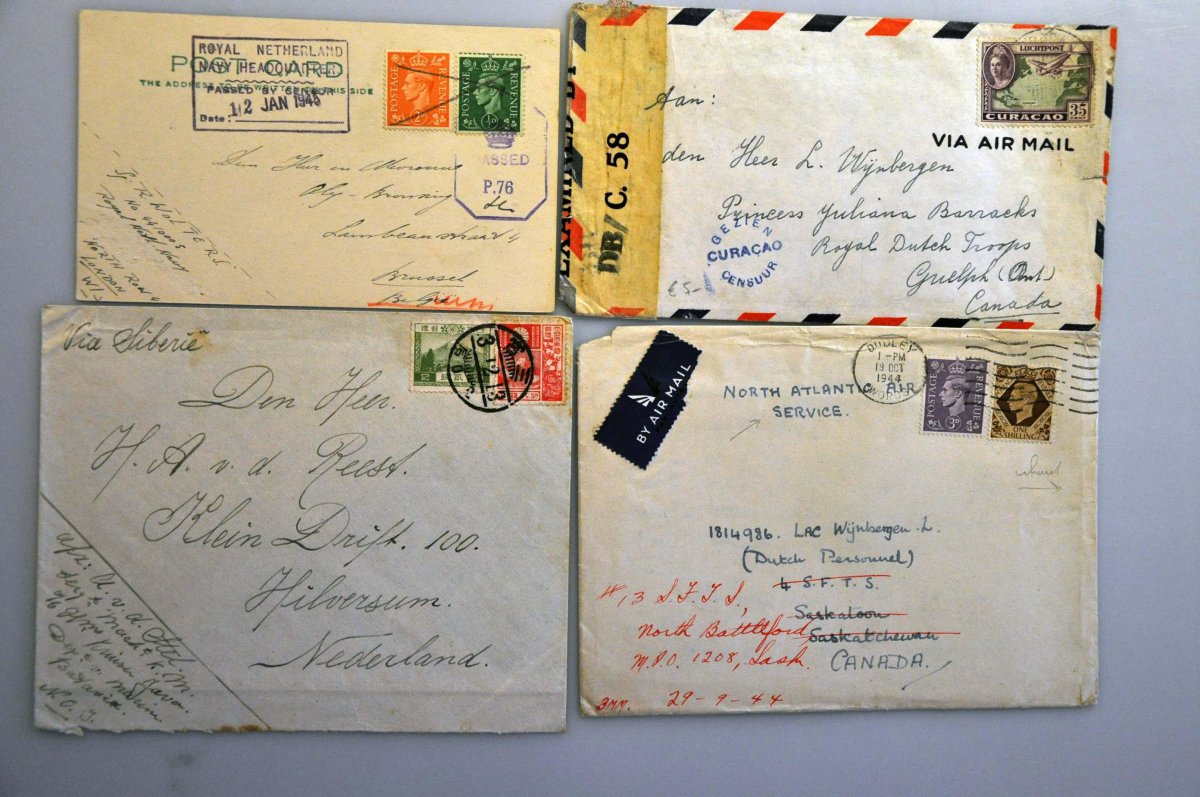 ROYAL NETHERLAND
NAVY HEADQUARTERS
PASSED BY CENSOR
12 JAN 1945
Date:
POST CARD
THE ADDRESS TO BE WRITTEN ON THIS SIDE
POSTAGE
REVENUE
POSTAGE
REVENUE
PASSED
P.76
Den Heer en Mevrouw
Lambeaustraat 4
Brussel
België
K. WOLTERS.
Royal Neth. Navy
NORTH ROW
LONDON
W1
EXAMINED BY
DB/C. 58
LUCHTPOST
35
CURAÇAO
VIA AIR MAIL
Aan:
den Heer L. Wijnbergen
Princess Juliana Barracks
Royal Dutch Troops
Guelph (Ont)
Canada
GEZIEN
CURAÇAO
CENSUUR
€5-
Via Siberië
10
Den Heer.
H. A. v. d. Reest.
Klein Drift. 100.
Hilversum.
Nederland.
afz: A. v. d. Stel.
serg.t Mach.t K.M.
a/b Hr Ms Kruiser Java.
Dep.t v. Marine
Batavia.
N.O.I.
BY AIR MAIL
NORTH ATLANTIC AIR
SERVICE.
DUDLEY
1 - PM
19 OCT
1944
WORCS
POSTAGE
REVENUE
3D
ONE
SHILLING
1814986. LAC Wijnbergen. L.
(Dutch Personnel)
4 S.F.T.S.
Saskatoon
Saskatchewan
CANADA.
#13 S.F.T.S,
North Battleford
M.P.O. 1208, Sask.
29-9-44